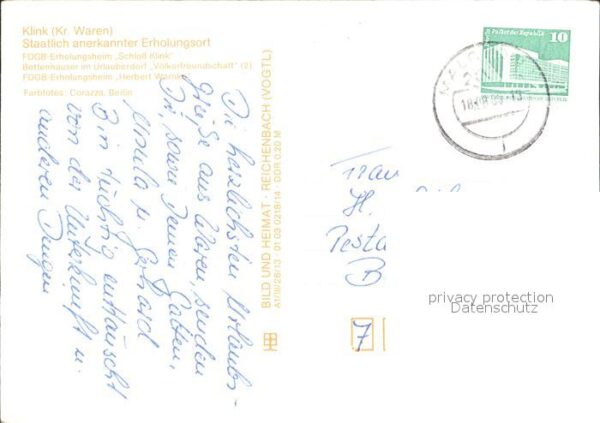 Klink (Kr. Waren)
Staatlich anerkannter Erholungsort
FDGB-Erholungsheim „Schloß Klink"
Bettenhäuser im Urlauberdorf „Völkerfreundschaft" (2)
FDGB-Erholungsheim „Herbert Warnke"
Farbfotos: Corazza, Berlin
Die herzlichsten Urlaubs-
grüße aus Waren, senden
Dir, sowie Deinem Gatten,
Ursula u. Gerhard
Bin tüchtig enttäuscht
von der Unterkunft u.
anderen Dingen
BILD UND HEIMAT REICHENBACH (VOGTL)
A1/III/26/13 01 03 0218/14 DDR 0,20 M
Palast der Republik
10
18.
Frau
H.
Pesta
B
7
privacy protection
Datenschutz